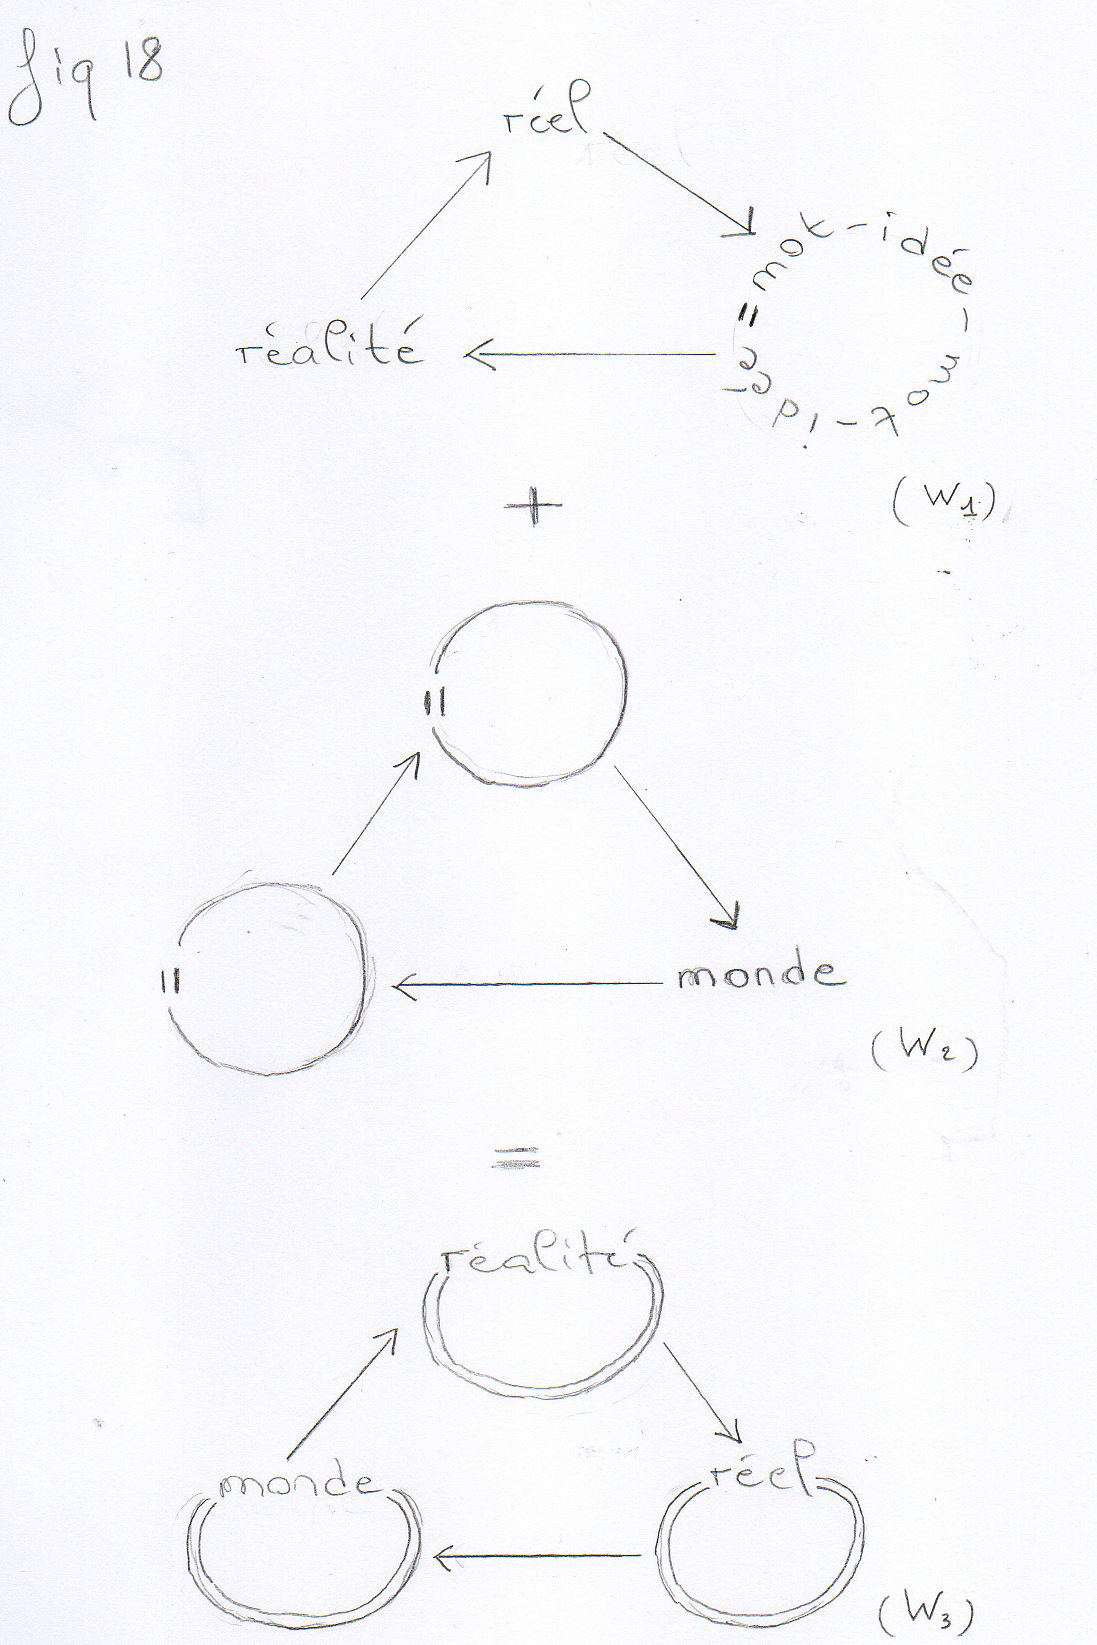 fig 18
réel
mot-idée-mot-idée=
réalité
(W1)
+
=
=
monde
(W2)
=
réalité
réel
monde
(W3)